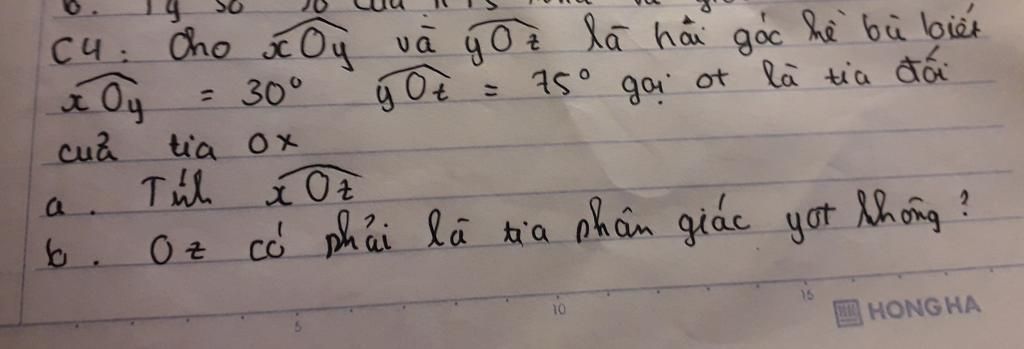 C4: Cho xOy và yOz là hai góc kề bù biết
xOy = 30° yOz = 75° gọi ot là tia đối
của tia Ox
a. Tính xOz
b. Oz có phải là tia phân giác yot không?
5 10 15
HONG HA